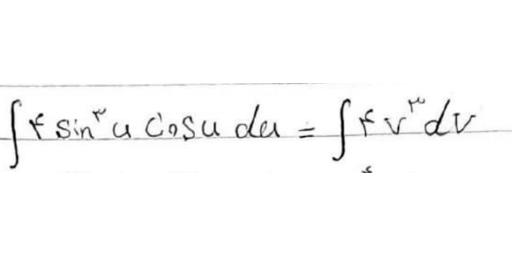 ∫۴ sin^۳ u cosu du = ∫۴v^۳ dv